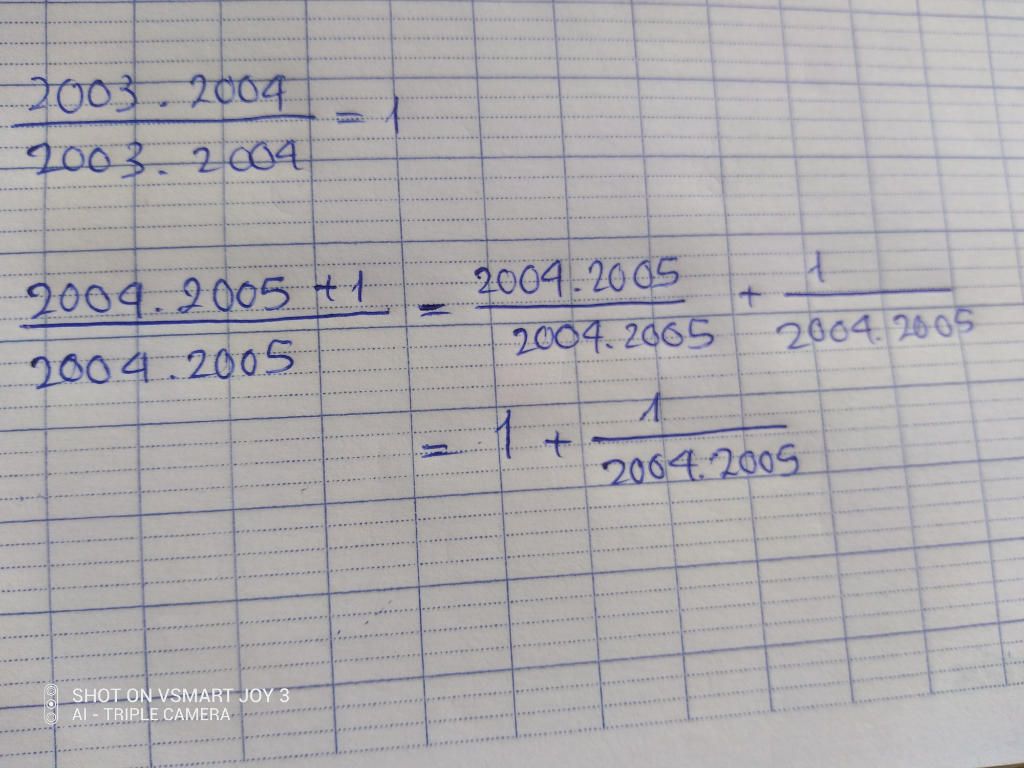 2003 . 2004
= 1
2003 . 2004
2004 . 2005 + 1 = 2004 . 2005 + 1
2004 . 2005 2004 . 2005 2004 . 2005
= 1 + 1
2004 . 2005
SHOT ON VSMART JOY 3
AI - TRIPLE CAMERA